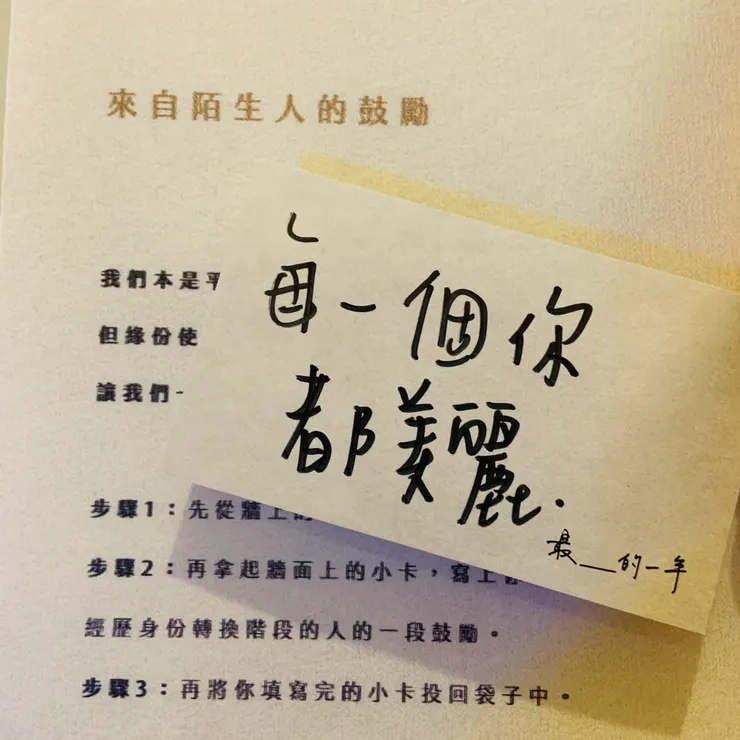 來自陌生人的鼓勵
我們本是平
但緣份使
讓我們一
每一個你
都美麗.
最__的一年
步驟1：先從牆上的
步驟2：再拿起牆面上的小卡，寫上
經歷身份轉換階段的人的一段鼓勵。
步驟3：再將你填寫完的小卡投回袋子中。